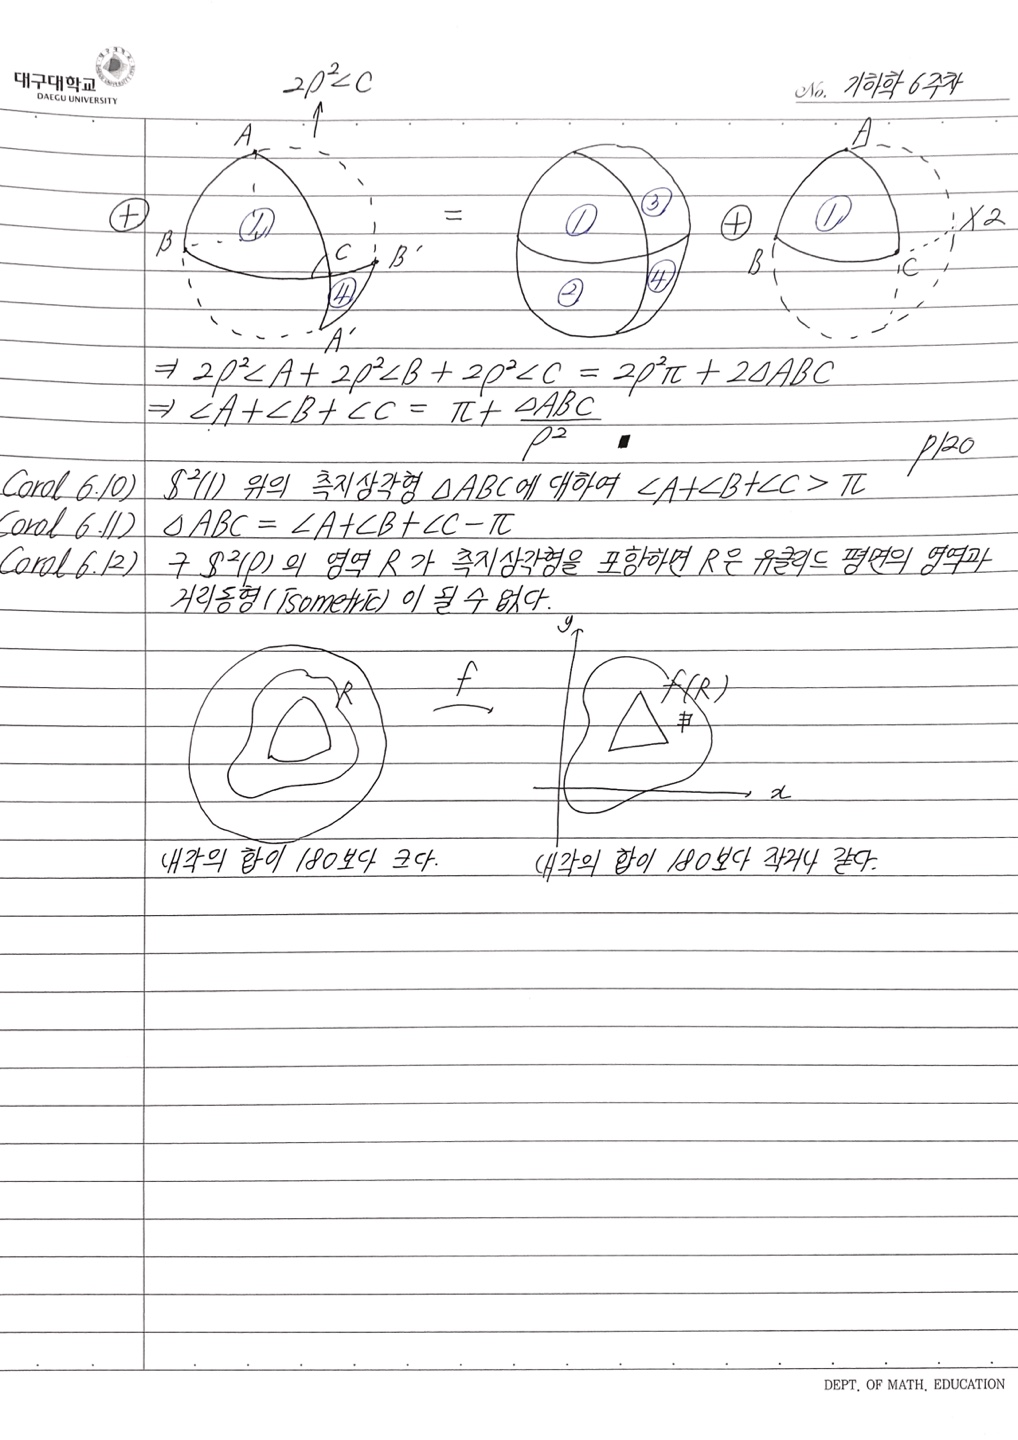 대구대학교
DAEGU UNIVERSITY
No. 기하학 6주차
2ρ²∠C
A
B
①
C
B′
④
A′
⊕
=
①
③
②
④
⊕
A
B
①
C
X2
⇒ 2ρ²∠A + 2ρ²∠B + 2ρ²∠C = 2ρ²π + 2△ABC
⇒ ∠A+∠B+∠C = π + △ABC/ρ² ■
p120
Corol 6.10) $²(1) 위의 측지삼각형 △ABC에 대하여 ∠A+∠B+∠C > π
Corol 6.11) △ABC = ∠A+∠B+∠C-π
Corol 6.12) 구 $²(ρ)의 영역 R가 측지삼각형을 포함하면 R은 유클리드 평면의 영역과
거리동형(Isometric)이 될 수 없다.
R
f
y
f(R)
x
내각의 합이 180보다 크다.
내각의 합이 180보다 작거나 같다.
DEPT. OF MATH. EDUCATION